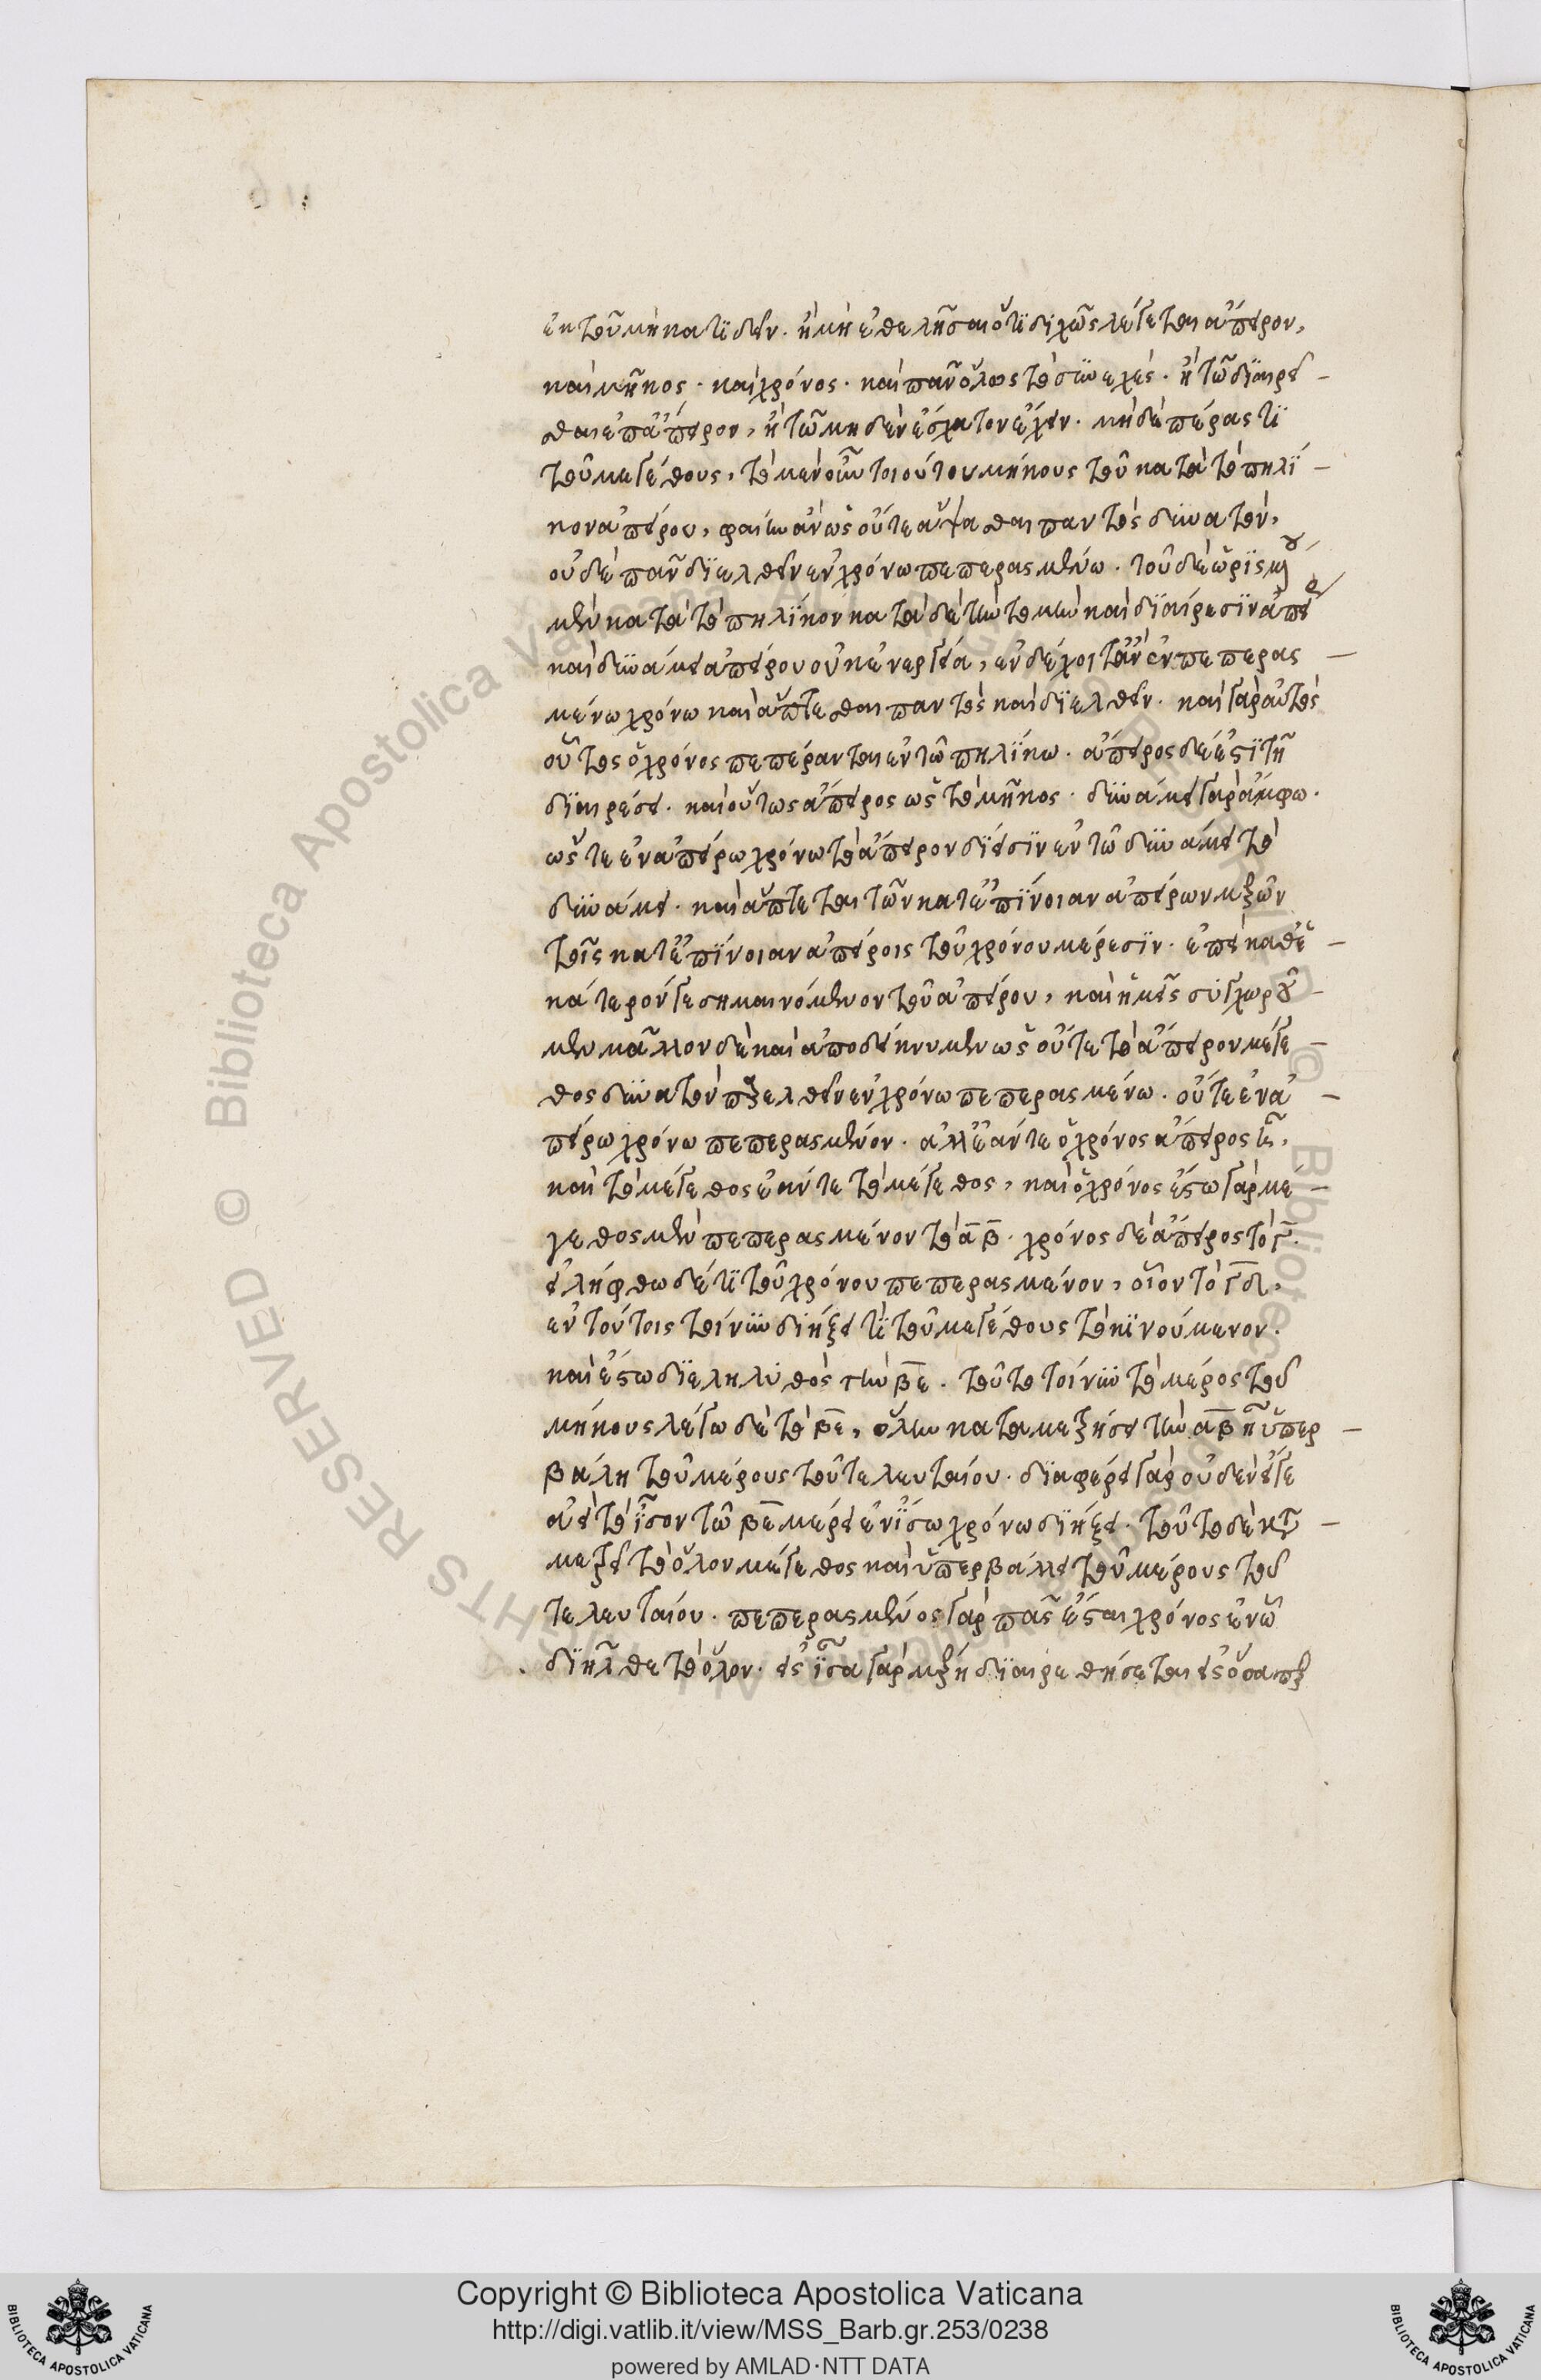 ἐκ τοῦ μὴ κατιδεῖν. ἢ μὴ ἐθελῆσαι ὅτι διχῶς λέγεται ἄπειρον,
καὶ μῆκος. καὶ χρόνος. καὶ πᾶν ὅλως τὸ συνεχές. ἢ τῶ διαιρεῖ
σθαι ἐπ' ἄπειρον, ἢ τῶ μηδὲν ἔσχατον ἔχειν. μηδὲ πέρας τι
τοῦ μεγέθους, τὸ μὲν οὖν τοιούτου μήκους τοῦ κατὰ τὸ πηλί
κον ἀπείρου, φαίην ἂν ὡς οὔτε ἅψασθαι παντὸς δυνατὸν,
οὐδὲ πᾶν διελθεῖν ἐν χρόνω πεπερασμένω. τοῦ δὲ ὡρισμένου
μὲν κατὰ τὸ πηλίκον κατὰ δὲ τὴν τομὴν καὶ διαίρεσιν ἀπείρου
καὶ δυνάμει ἀπείρου οὐκ ἐνεργεία, ἐνδέχοιτ' ἂν ἐν πεπερασ
μένω χρόνω καὶ ἅπτεσθαι παντὸς καὶ διελθεῖν. καὶ γὰρ αὐτὸς
οὗτος ὁ χρόνος πεπέρανται ἐν τῶ πηλίκω. ἄπειρος δέ ἐστι τῆ
διαιρέσει. καὶ οὕτως ἄπειρος ὡς τὸ μῆκος. δυνάμει γὰρ ἄμφω.
ὥστε ἐν ἀπείρω χρόνω τὸ ἄπειρον δίεισιν ἐν τῶ δυνάμει τὸ
δυνάμει. καὶ ἅπτεται τῶν κατ' ἐπίνοιαν ἀπείρων μερῶν
τοῖς κατ' ἐπίνοιαν ἀπείροις τοῦ χρόνου μέρεσιν. ἐπεὶ καθ' ἑ
κάτερόν γε σημαινόμενον τοῦ ἀπείρου, καὶ ἡμεῖς συγχωροῦ
μεν μᾶλλον δὲ καὶ ἀποδείκνυμεν ὡς οὔτε τὸ ἄπειρον μέγε
θος δυνατὸν περιελθεῖν ἐν χρόνω πεπερασμένω. οὔτε ἐν ἀ
πείρω χρόνω πεπερασμένον. ἀλλ' ἐάν τε ὁ χρόνος ἄπειρος ἦ,
καὶ τὸ μέγεθος ἐάν τε τὸ μέγεθος, καὶ ὁ χρόνος ἔστω γὰρ μέ
γεθος μὲν πεπερασμένον τὸ α̅β̅. χρόνος δὲ ἄπειρος τὸ γ̅.
εἰλήφθω δέ τι τοῦ χρόνου πεπερασμένον, οἷον τὸ γ̅δ̅,
ἐν τούτοις τοίνυν διήξει τι τοῦ μεγέθους τὸ κινούμενον.
καὶ ἔστω διεληλυθὸς τὴν β̅ε̅. τοῦτο τοίνυν τὸ μέρος τοῦ
μήκους λέγω δὲ τὸ β̅ε̅, ὅλην καταμετρήσει τὴν α̅β̅ ἢ ὑπερ
βάλη τοῦ μέρους τοῦ τελευταίου. διαφέρει γὰρ οὐδὲν εἴ γε
ἀεὶ τὸ ἴσον τῶ β̅ε̅ μέρει ἐν ἴσω χρόνω διήξει. τοῦτο δὲ κατα
μετρεῖ τὸ ὅλον μέγεθος καὶ ὑπερβάλλει τοῦ μέρους τοῦ
τελευταίου. πεπερασμένος γὰρ πᾶς ἔσται χρόνος ἐν ὧ
διῆλθε τὸ ὅλον. εἰς ἴσα γὰρ μέρη διαιρεθήσεται εἰς ὅσαπερ